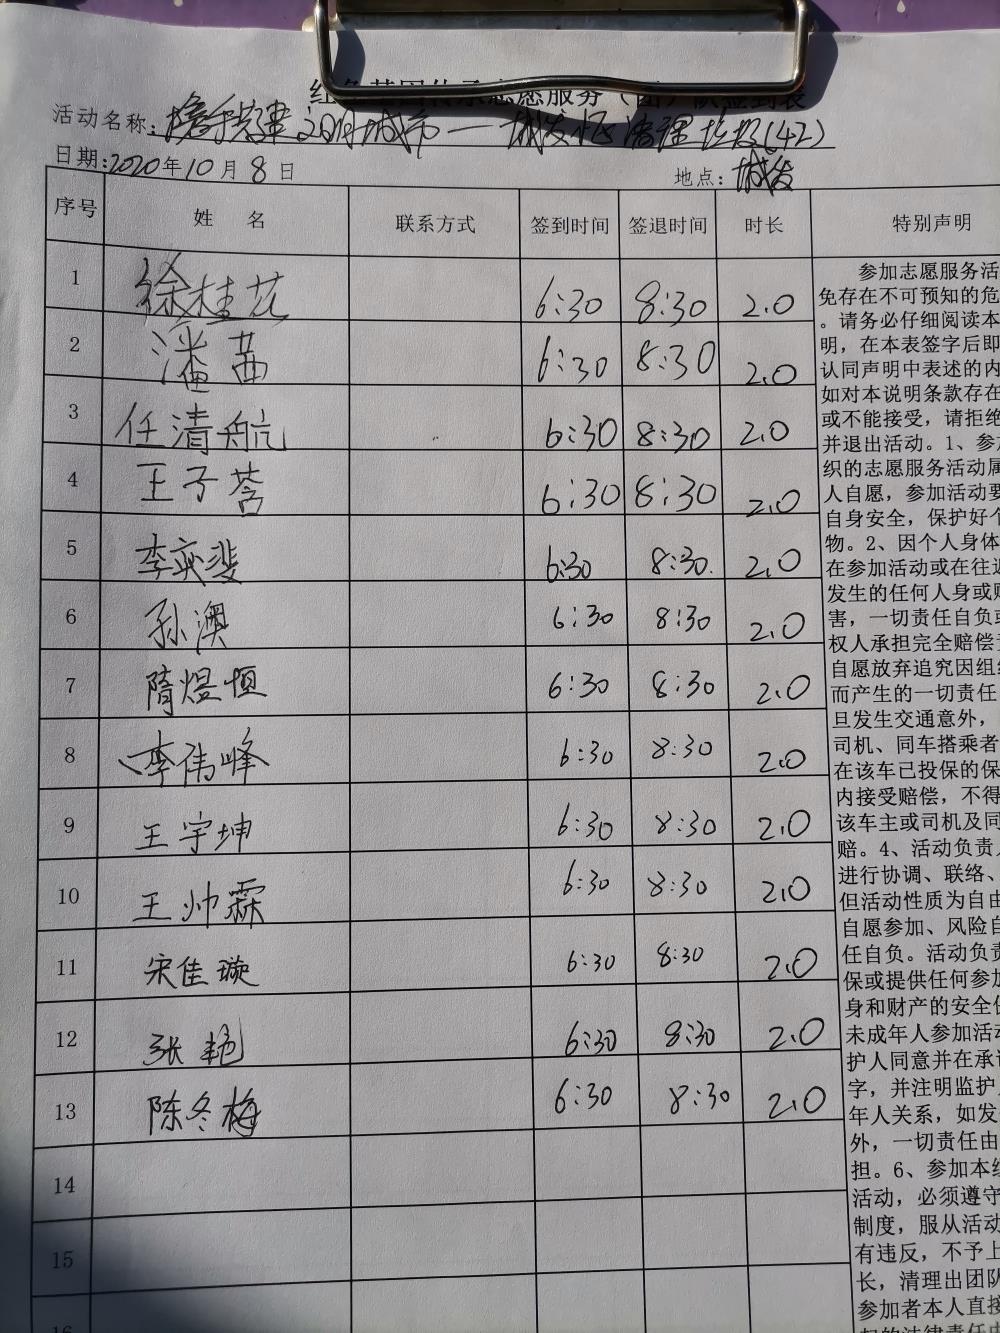 红色基因传承志愿服务(团)队签到表
活动名称:携手共建文明城市一城发小区清理垃圾(42)
日期:2020年10月8日 地点:城发
序号 姓 名 联系方式 签到时间 签退时间 时长 特别声明
1 徐桂花 6:30 8:30 2.0
2 潘茜 6:30 8:30 2.0
3 任清航 6:30 8:30 2.0
4 王子菡 6:30 8:30 2.0
5 李英斐 6:30 8:30 2.0
6 孙澳 6:30 8:30 2.0
7 隋煜恒 6:30 8:30 2.0
8 李伟峰 6:30 8:30 2.0
9 王宇坤 6:30 8:30 2.0
10 王帅霖 6:30 8:30 2.0
11 宋佳璇 6:30 8:30 2.0
12 张艳 6:30 8:30 2.0
13 陈冬梅 6:30 8:30 2.0
14
15
16
参加志愿服务活
免存在不可预知的危
。请务必仔细阅读本
明，在本表签字后即
认同声明中表述的内
如对本说明条款存在
或不能接受，请拒绝
并退出活动。1、参加
织的志愿服务活动属
人自愿，参加活动要
自身安全，保护好个
物。2、因个人身体
在参加活动或在往返
发生的任何人身或财
害，一切责任自负或
权人承担完全赔偿责
自愿放弃追究因组织
而产生的一切责任
旦发生交通意外，
司机、同车搭乘者
在该车已投保的保
内接受赔偿，不得
该车主或司机及同
赔。4、活动负责人
进行协调、联络、
但活动性质为自由
自愿参加、风险自
任自负。活动负责
保或提供任何参加
身和财产的安全保
未成年人参加活动
护人同意并在承诺
字，并注明监护人
年人关系，如发
外，一切责任由
担。6、参加本组
活动，必须遵守
制度，服从活动
有违反，不予上
长，清理出团队
参加者本人直接